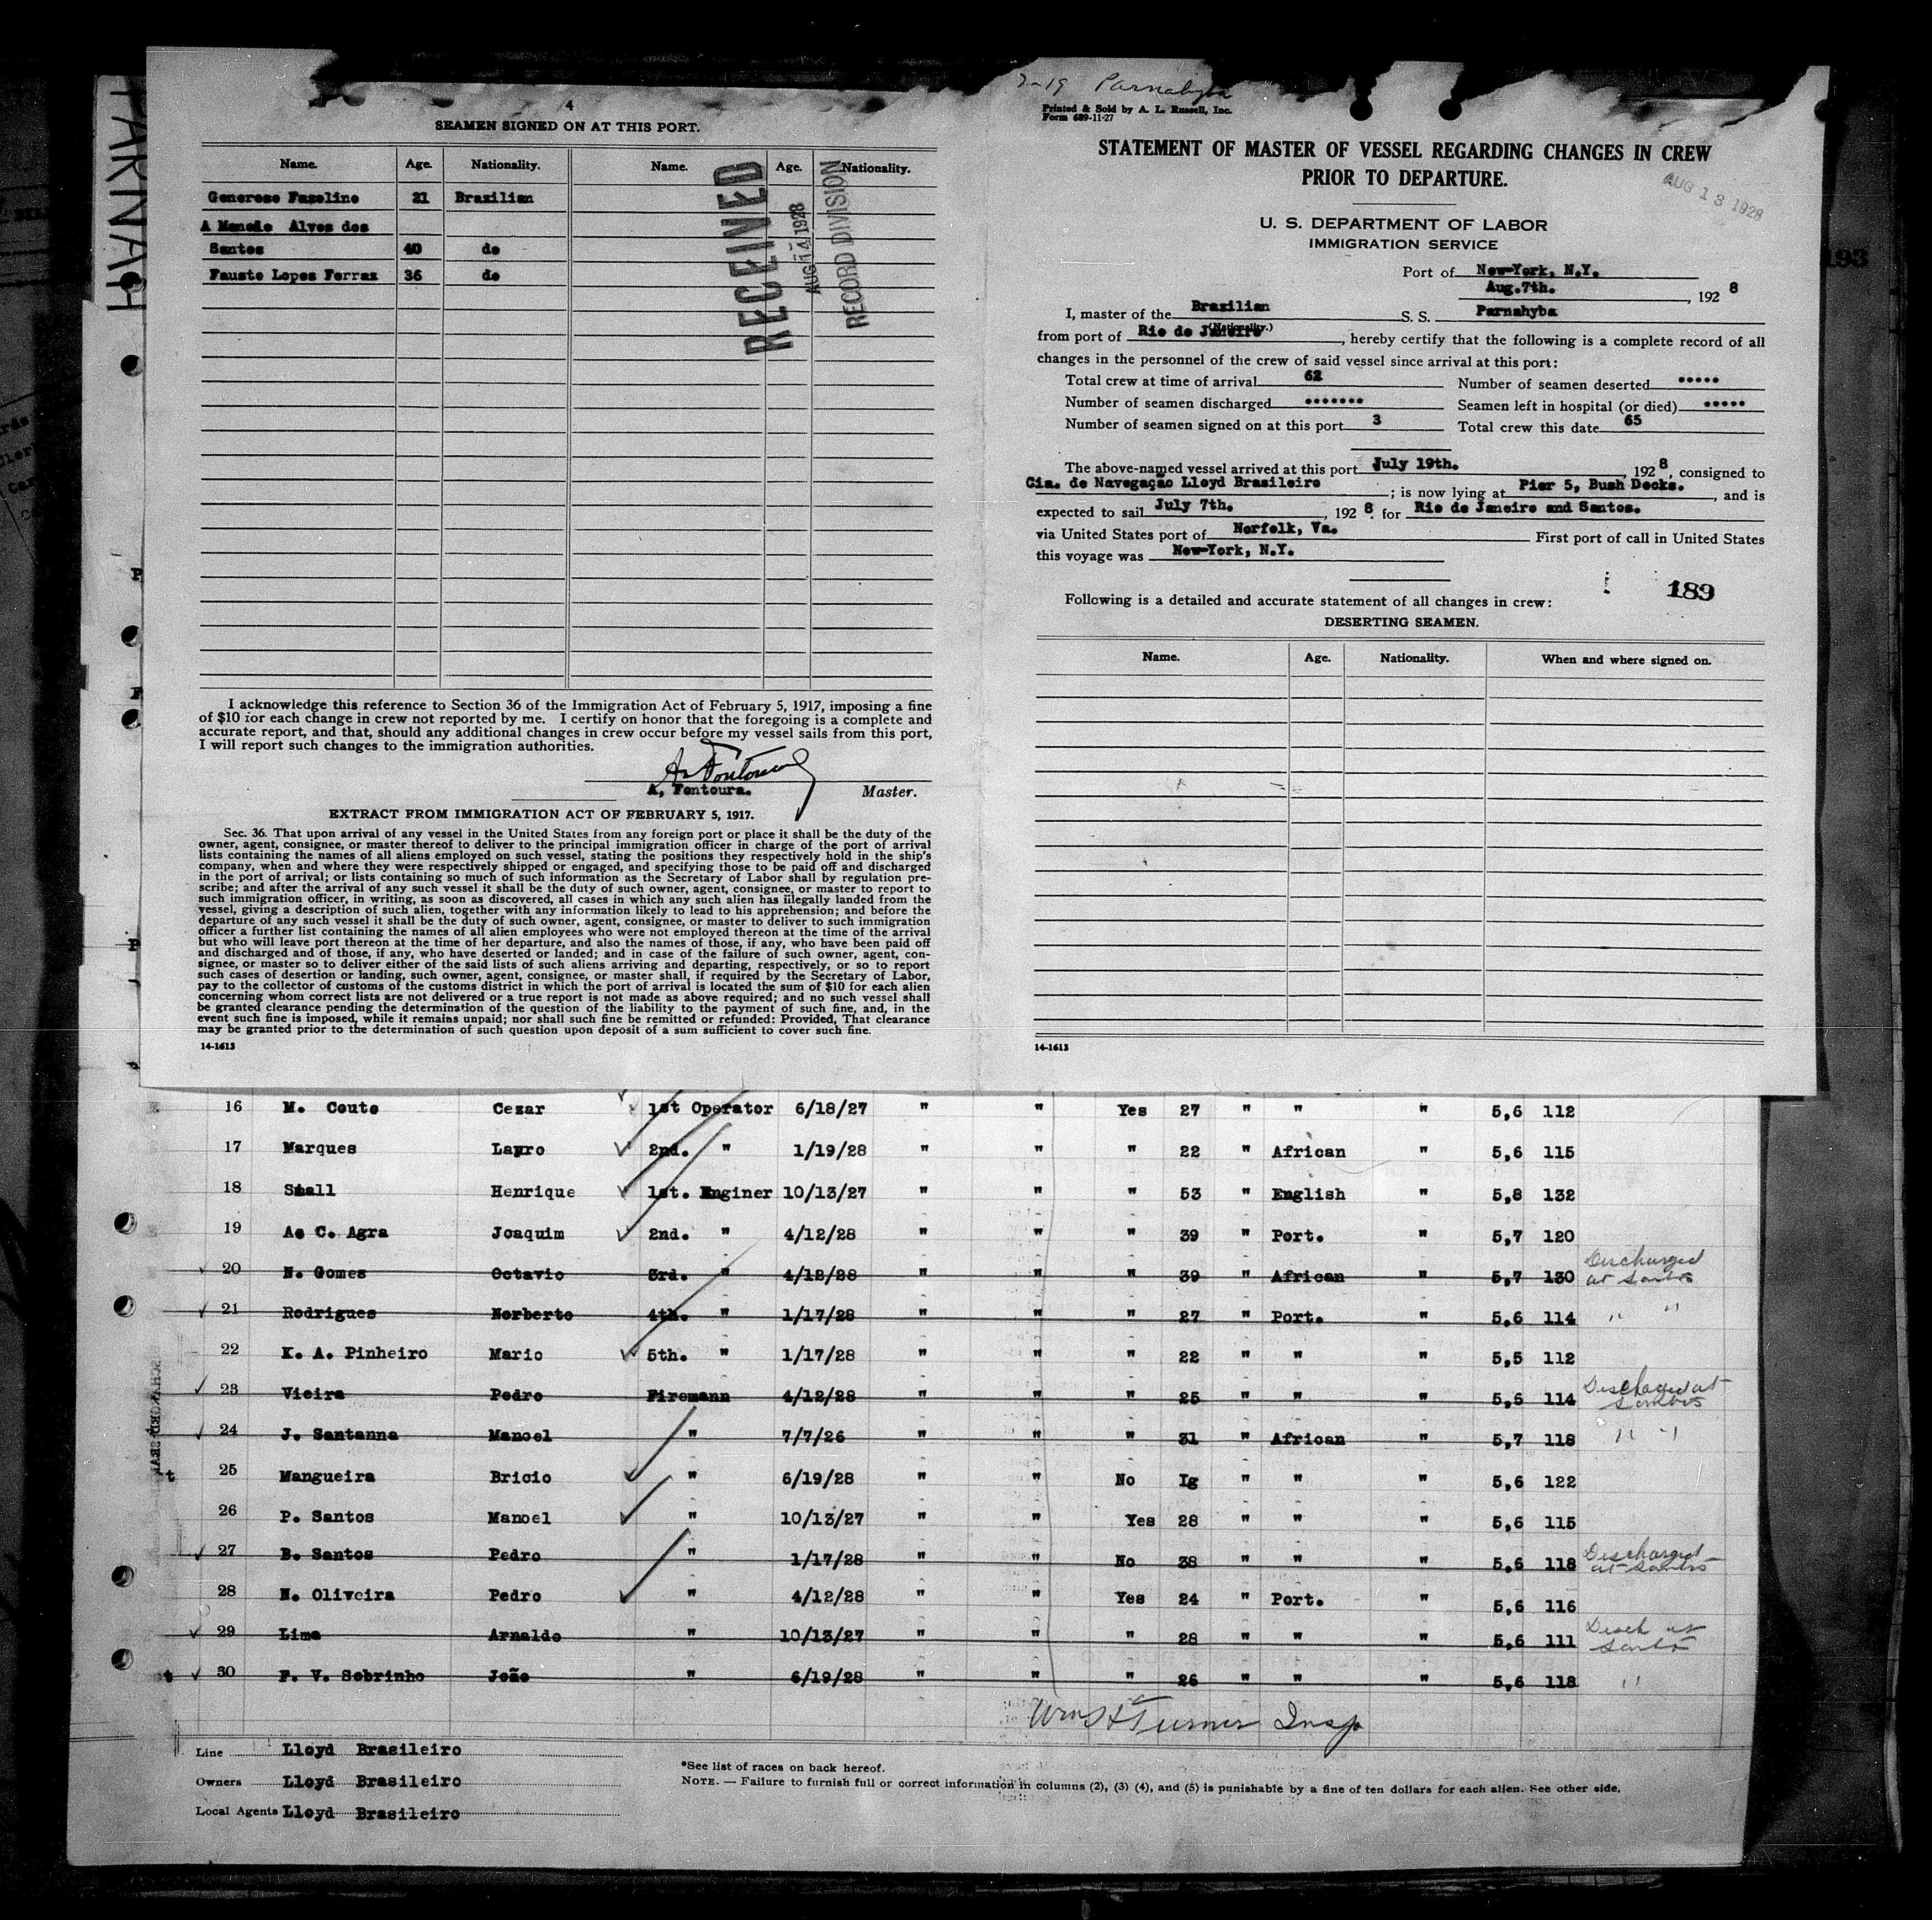 PARNAH
4
SEAMEN SIGNED ON AT THIS PORT.
Name. Age. Nationality. Name. Age. Nationality.
Generoso Fazolino 21 Brazilian
A Manoio Alves dos
Santos 40 do
Fausto Lopes Ferraz 36 do
RECEIVED
AUG 14 1928
RECORD DIVISION
I acknowledge this reference to Section 36 of the Immigration Act of February 5, 1917, imposing a fine
of $10 for each change in crew not reported by me. I certify on honor that the foregoing is a complete and
accurate report, and that, should any additional changes in crew occur before my vessel sails from this port,
I will report such changes to the immigration authorities.
A. Fontoura
A, Fontoura. Master.
EXTRACT FROM IMMIGRATION ACT OF FEBRUARY 5, 1917.
Sec. 36. That upon arrival of any vessel in the United States from any foreign port or place it shall be the duty of the
owner, agent, consignee, or master thereof to deliver to the principal immigration officer in charge of the port of arrival
lists containing the names of all aliens employed on such vessel, stating the positions they respectively hold in the ship's
company, when and where they were respectively shipped or engaged, and specifying those to be paid off and discharged
in the port of arrival; or lists containing so much of such information as the Secretary of Labor shall by regulation pre-
scribe; and after the arrival of any such vessel it shall be the duty of such owner, agent, consignee, or master to report to
such immigration officer, in writing, as soon as discovered, all cases in which any such alien has illegally landed from the
vessel, giving a description of such alien, together with any information likely to lead to his apprehension; and before the
departure of any such vessel it shall be the duty of such owner, agent, consignee, or master to deliver to such immigration
officer a further list containing the names of all alien employees who were not employed thereon at the time of the arrival
but who will leave port thereon at the time of her departure, and also the names of those, if any, who have been paid off
and discharged and of those, if any, who have deserted or landed; and in case of the failure of such owner, agent, con-
signee, or master so to deliver either of the said lists of such aliens arriving and departing, respectively, or so to report
such cases of desertion or landing, such owner, agent, consignee, or master shall, if required by the Secretary of Labor,
pay to the collector of customs of the customs district in which the port of arrival is located the sum of $10 for each alien
concerning whom correct lists are not delivered or a true report is not made as above required; and no such vessel shall
be granted clearance pending the determination of the question of the liability to the payment of such fine, and, in the
event such fine is imposed, while it remains unpaid; nor shall such fine be remitted or refunded: Provided, That clearance
may be granted prior to the determination of such question upon deposit of a sum sufficient to cover such fine.
14-1613
7-19 Parnahyba
Printed & Sold by A. L. Russell, Inc.
Form 689-11-27
STATEMENT OF MASTER OF VESSEL REGARDING CHANGES IN CREW
PRIOR TO DEPARTURE.
AUG 13 1928
U. S. DEPARTMENT OF LABOR
IMMIGRATION SERVICE
Port of New-York, N.Y.
Aug.7th. , 192 8
I, master of the Brazilian S. S. Parnahyba
(Nationality.)
from port of Rio de Janeiro , hereby certify that the following is a complete record of all
changes in the personnel of the crew of said vessel since arrival at this port:
Total crew at time of arrival 62 Number of seamen deserted •••••
Number of seamen discharged ••••••• Seamen left in hospital (or died) •••••
Number of seamen signed on at this port 3 Total crew this date 65
The above-named vessel arrived at this port July 19th. , 192 8, consigned to
Cia. de Navegação Lloyd Brasileiro ; is now lying at Pier 5, Bush Docks. , and is
expected to sail July 7th. , 192 8. for Rio de Janeiro and Santos.
via United States port of Norfolk, Va. First port of call in United States
this voyage was New-York, N.Y.
189
Following is a detailed and accurate statement of all changes in crew:
DESERTING SEAMEN.
Name. Age. Nationality. When and where signed on.
14-1613
193
16 M. Couto Cezar 1st Operator 6/18/27 " " Yes 27 " " " 5,6 112
17 Marques Layro 2nd. " 1/19/28 " " " 22 " African " 5,6 115
18 Small Henrique 1st. Enginer 10/13/27 " " " 53 " English " 5,8 132
19 Ae C. Agra Joaquim 2nd. " 4/12/28 " " " 39 " Port. " 5,7 120
20 N. Gomes Octavio 3rd. " 4/12/28 " " " 39 " African " 5,7 130 Discharged at Santos
21 Rodrigues Norberto 4th. " 1/17/28 " " " 27 " Port. " 5,6 114 " "
22 K. A. Pinheiro Mario 5th. " 1/17/28 " " " 22 " " " 5,5 112
23 Vieira Pedro Firemann 4/12/28 " " " 25 " " " 5,6 114 Discharged at Santos
24 J. Santanna Manoel " 7/7/26 " " " 31 " African " 5,7 118 " "
25 Mangueira Bricio " 6/19/28 " " No Ig " " " 5,6 122
26 P. Santos Manoel " 10/13/27 " " Yes 28 " " " 5,6 115
27 B. Santos Pedro " 1/17/28 " " No 38 " " " 5,6 118 Discharged at Santos
28 N. Oliveira Pedro " 4/12/28 " " Yes 24 " Port. " 5,6 116
29 Lima Arnaldo " 10/13/27 " " " 28 " " " 5,6 111 Disch at Santos
30 F. V. Sobrinho João " 6/19/28 " " " 26 " " " 5,6 118 "
Wm H Turner Insp
Line Lloyd Brasileiro
Owners Lloyd Brasileiro
Local Agents Lloyd Brasileiro
*See list of races on back hereof.
NOTE. — Failure to furnish full or correct information in columns (2), (3) (4), and (5) is punishable by a fine of ten dollars for each alien. See other side.